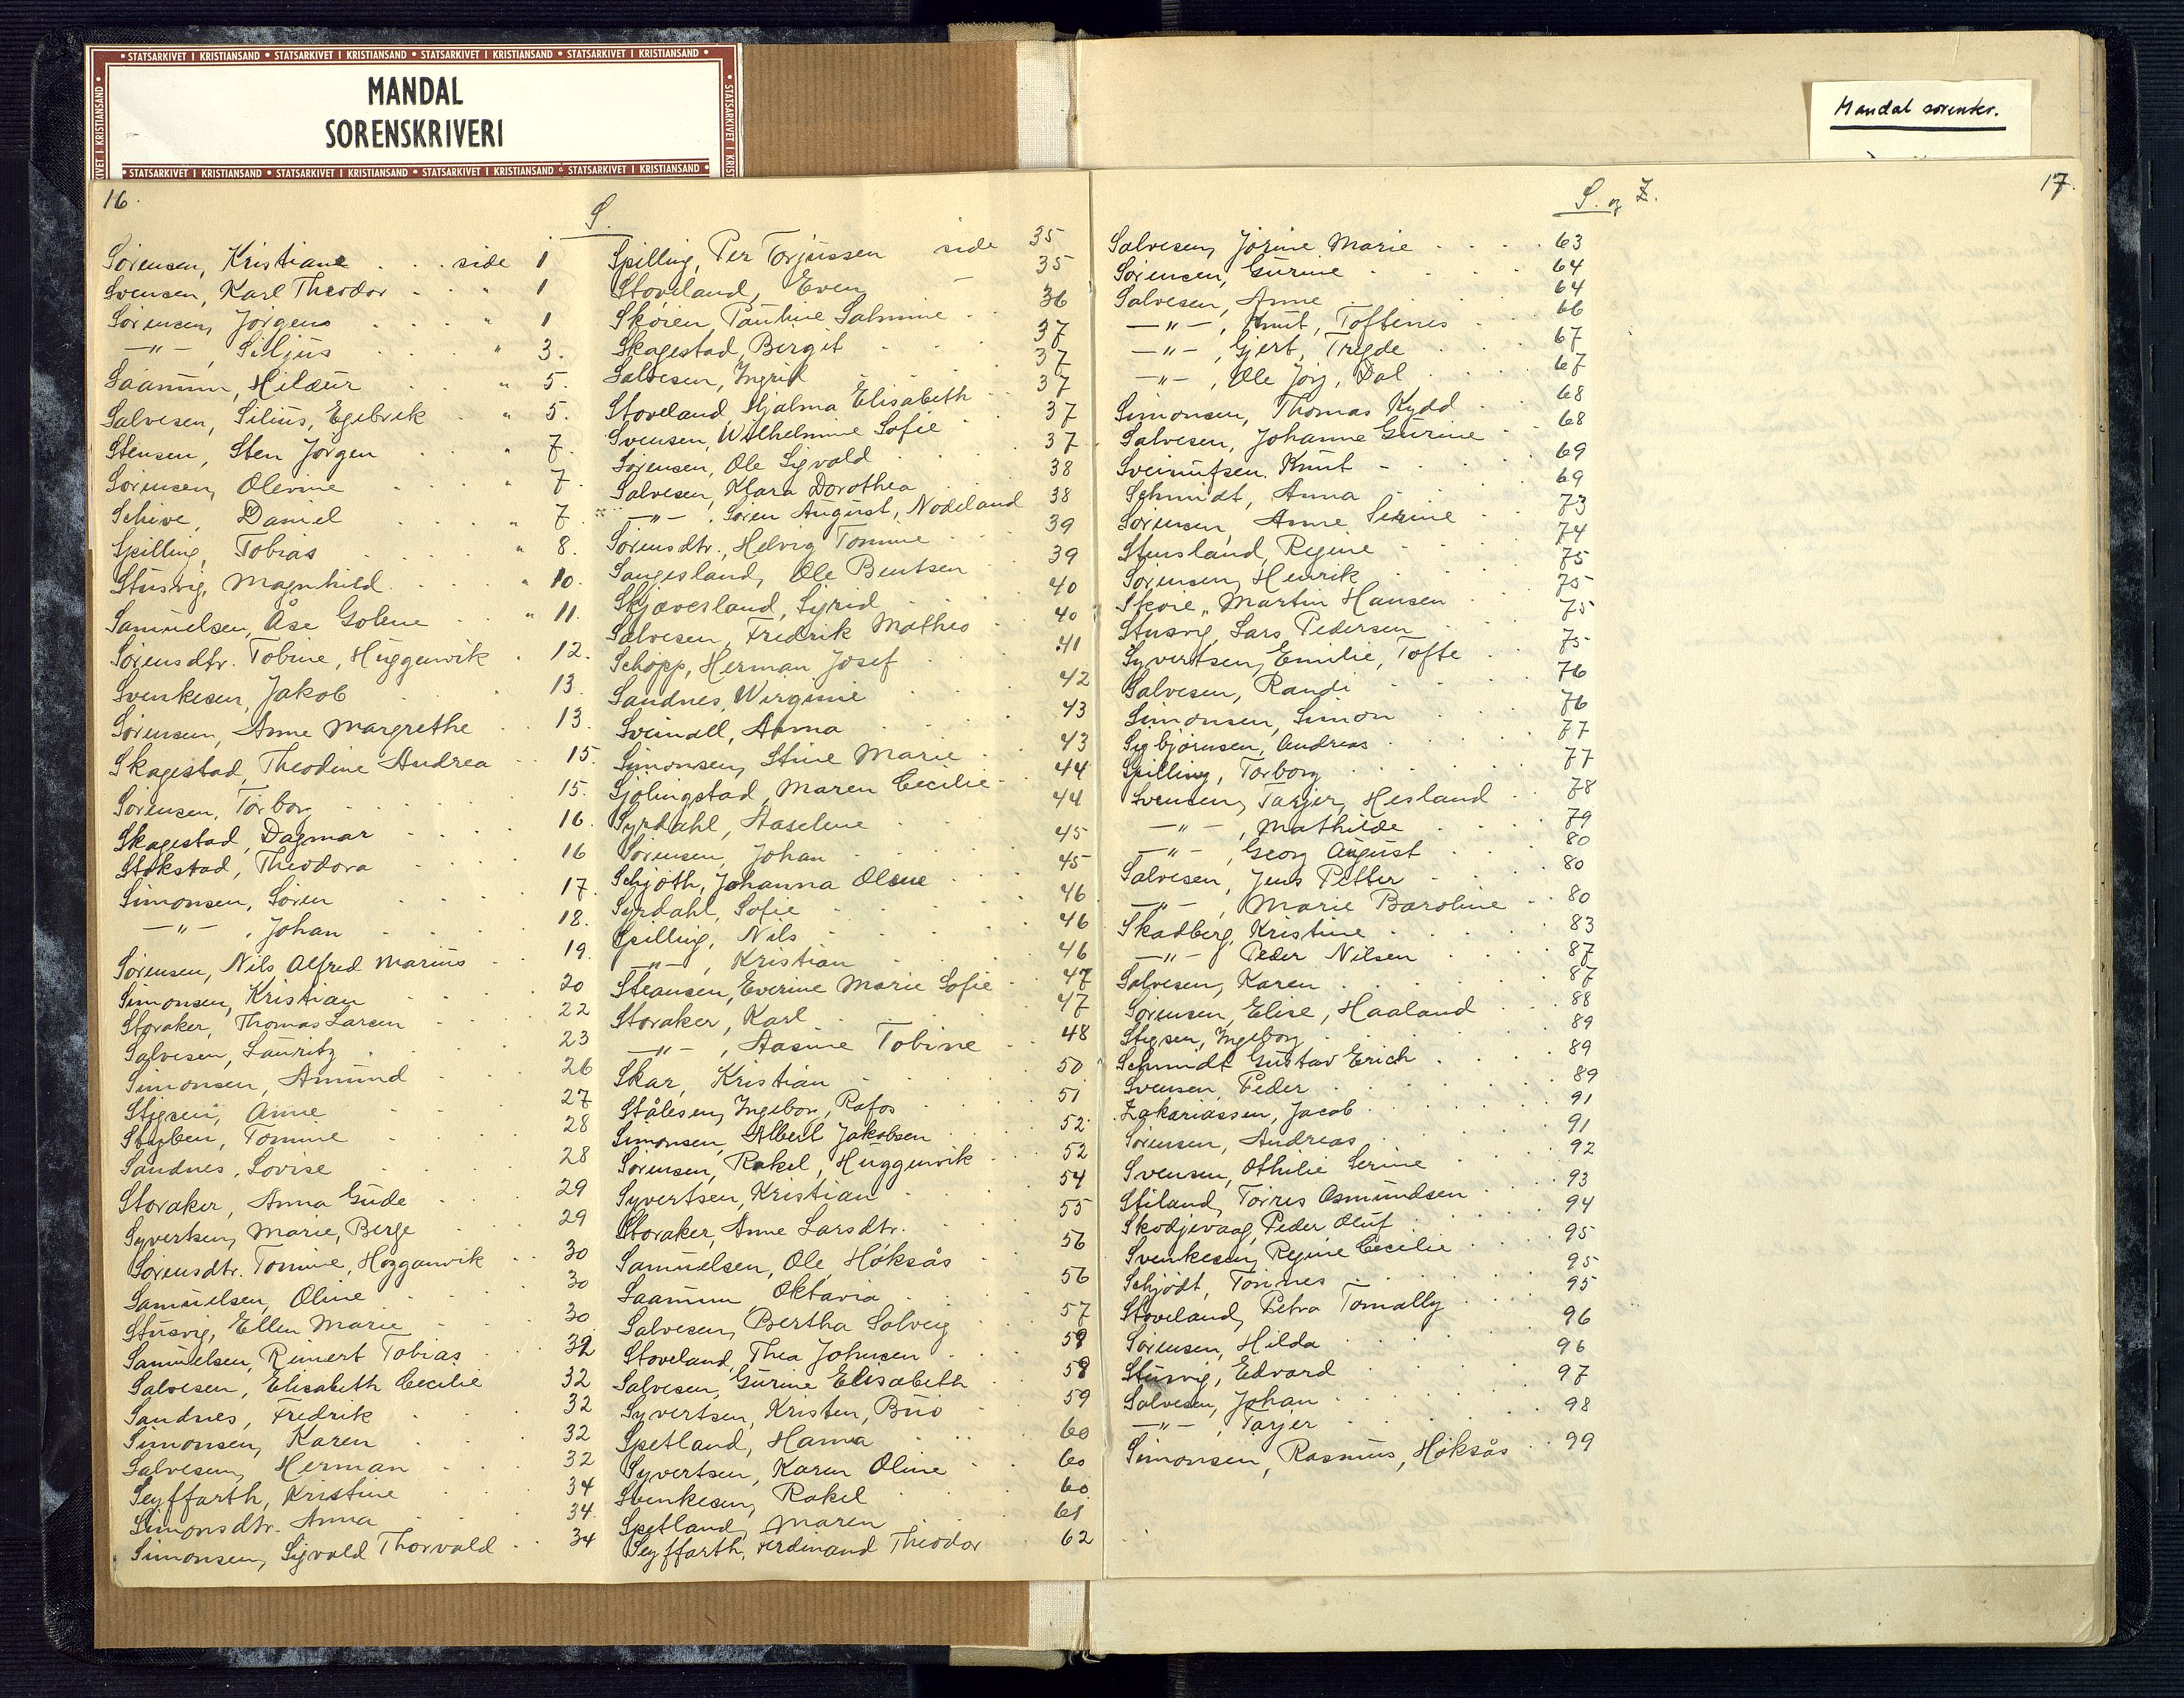 • STATSARKIVET I KRISTIANSAND • STATSARKIVET I KRISTIANSAND • STATSARKIVET I KRISTIANSAND • STATSARKIVET I KRISTIANSAND •
MANDAL
SORENSKRIVERI
• STATSARKIVET I KRISTIANSAND • STATSARKIVET I KRISTIANSAND • STATSARKIVET I KRISTIANSAND • STATSARKIVET I KRISTIANSAND •
Mandal sorenskr.
16.
S.
Sörensen, Kristiane . . . side 1
Svensen, Karl Theodor . . " 1
Sörensen, Jörgen . . . " 1
—"— , Siljus . . . " 3.
Saanum, Hildur . . " 5.
Salvesen, Silius, Egebrik . " 5.
Stensen, Sten Jörgen . . " 7.
Sörensen, Olevine . . " 7.
Schive, Daniel . . . " 7.
Spilling, Tobias . . . " 8.
Stusvig, Magnhild . . . " 10.
Samuelsen, Åse Golene . . " 11.
Sörensdtr. Tobine, Huggenvik . 12.
Svenkesen, Jakob . . " 13.
Sörensen, Anne Margrethe . . 13.
Skagestad, Theodine Andrea . . 15.
Sörensen, Torborg . . . . 15.
Skagestad, Dagmar . . . 16.
Stokstad, Theodora . . . . 16
Simonsen, Sören . . . . 17.
—"— , Johan . . . . 18.
Sörensen, Nils Alfred Marius . . 19.
Simonsen, Kristian . . . 20
Storaker, Thomas Larsen . . 22
Salvesen, Lauritz . . . . 23
Simonsen, Amund . . . 26
Stigsen, Anne . . . 27
Stuben, Tomine . . . 28
Sandnes, Lovise . . . 28
Storaker, Anna Gude . . . 29
Syvertsen, Marie, Berge . . 29
Sörensdtr. Tomine, Hogganvik . . 30
Samuelsen, Oline . . . 30
Stusvig, Ellen Marie . . . 30
Samuelsen, Reinert Tobias . . 32
Salvesen, Elisabeth Cecilie . . 32
Sandnes, Fredrik . . . 32
Simonsen, Karen . . . 32
Salvesen, Herman . . . 32
Seyffarth, Kristine . . . 34
Simonsdtr. Anna . . . 34.
Simonsen, Sigvald Thorvald . . 34
Spilling, Per Torjussen side 35
Stoveland, Even — 35
Skören, Pauline Salmine . . 36
Skagestad, Bergit . . . 37
Salvesen, Ingrid . . . 37
Stoveland, Hjalma Elisabeth . . 37
Svensen, Wilhelmine Sofie . 37
Sörensen, Ole Sigvald . . . 37
Salvesen, Klara Dorothea . . 38
—"— , Sören August, Nodeland 38
Sörensdtr., Helvig Tomine . . 39
Sangesland, Ole Bentsen . . 39
Skjæverland, Syrid . . . 40
Salvesen, Fredrik Matheo . . 40
Schöpp, Herman Josef . . 41
Sandnes, Wirginie . . . 42
Svindell, Anna . . . 43
Simonsen, Stine Marie . . 43
Sjölingstad, Maren Cecilie . . 44
Syrdahl, Aaselene . . . 44
Sörensen, Johan . . . 45
Schjöth, Johanna Olene . . 45
Syrdahl, Sofie . . . 46
Spilling, Nils . . . 46
—"— , Kristian . . . 46
Steansen, Everine Marie Sofie . 47
Storaker, Karl . . . 47
—"— , Aasine Tobine . . 48
Skar, Kristian . . . 50
Stålesen, Ingebor, Rafos . . 51
Simonsen, Albert Jakobsen . . 52
Sörensen, Rakel, Huggenvik . . 52
Syvertsen, Kristian . . . 54
Storaker, Anne Larsdtr. . . 55
Samuelsen, Ole, Höksås . . 56
Saanum Oktavia . . . 56
Salvesen, Bertha Solveig . . 57
Stoveland, Thea Johnsen . . 58
Salvesen, Gurine Elisabeth . . 58
Syvertsen, Kristen, Buö . . 59
Spetland, Hanna . . . 60
Syvertsen, Karen Oline . . 60
Svenkesen, Rakel . . . 60
Spetland, Maren . . . 61
Seyffarth, Ferdinand Theodor . . 62
S. og Z.
17.
Salvesen, Jörine Marie . . . 63
Sörensen, Gurine . . . . 64
Salvesen, Anne . . . . 64
—"— , Knut, Toftenes . . . 66
—"— , Gjert, Tregde . . . 67
—"— , Ole Jörg, Dal . . . 67
Simonsen, Thomas Kydd . . . 68
Salvesen, Johanne Gurine . . 68
Sveinufsen, Knut . . . . 69
Schmidt, Anna . . . . 69
Sörensen, Anne Serine . . . 73
Stensland, Regine . . . 74
Sörensen, Henrik . . . 75
Skoie, Martin Hansen . . . 75
Stusvig, Lars Pedersen . . . 75
Syvertsen, Emilie, Tofte . . . 75
Salvesen, Randi . . . 76
Simonsen, Simon . . . 76
Sigbjörnsen, Andreas . . . 77
Spilling, Torborg . . . 77
Svensen, Tarjer, Hesland . . 78
—"— , Mathilde . . . 79
—"— , Georg August . . . 80
Salvesen, Jens Petter . . . 80
—"— , Marie Baroline . . 80
Skadberg, Kristine . . . 83
—"— Peder Nilsen . . . 87
Salvesen, Karen . . . 87
Sörensen, Elise, Haaland . . 88
Stigsen, Ingeborg . . . 89
Schmidt Gustav Erich . . . 89
Svensen, Peder . . . 89
Zakariassen, Jacob . . . 91
Sörensen, Andreas . . . 91
Svensen, Othilie Serine . . . 92
Stiland, Torres Osmundsen . . 93
Skodjevaag, Peder Oluf . . . 94
Svenkesen, Regine Cecilie . . 95
Schjödt, Tönnes . . . 95
Stoveland, Petra Tomally . . 95
Sörensen, Hilda . . . 96
Stusvig, Edvard . . . 96
Salvesen, Johan . . . 97
—"— , Tarjer . . . 98
Simonsen, Rasmus, Höksås . . 99